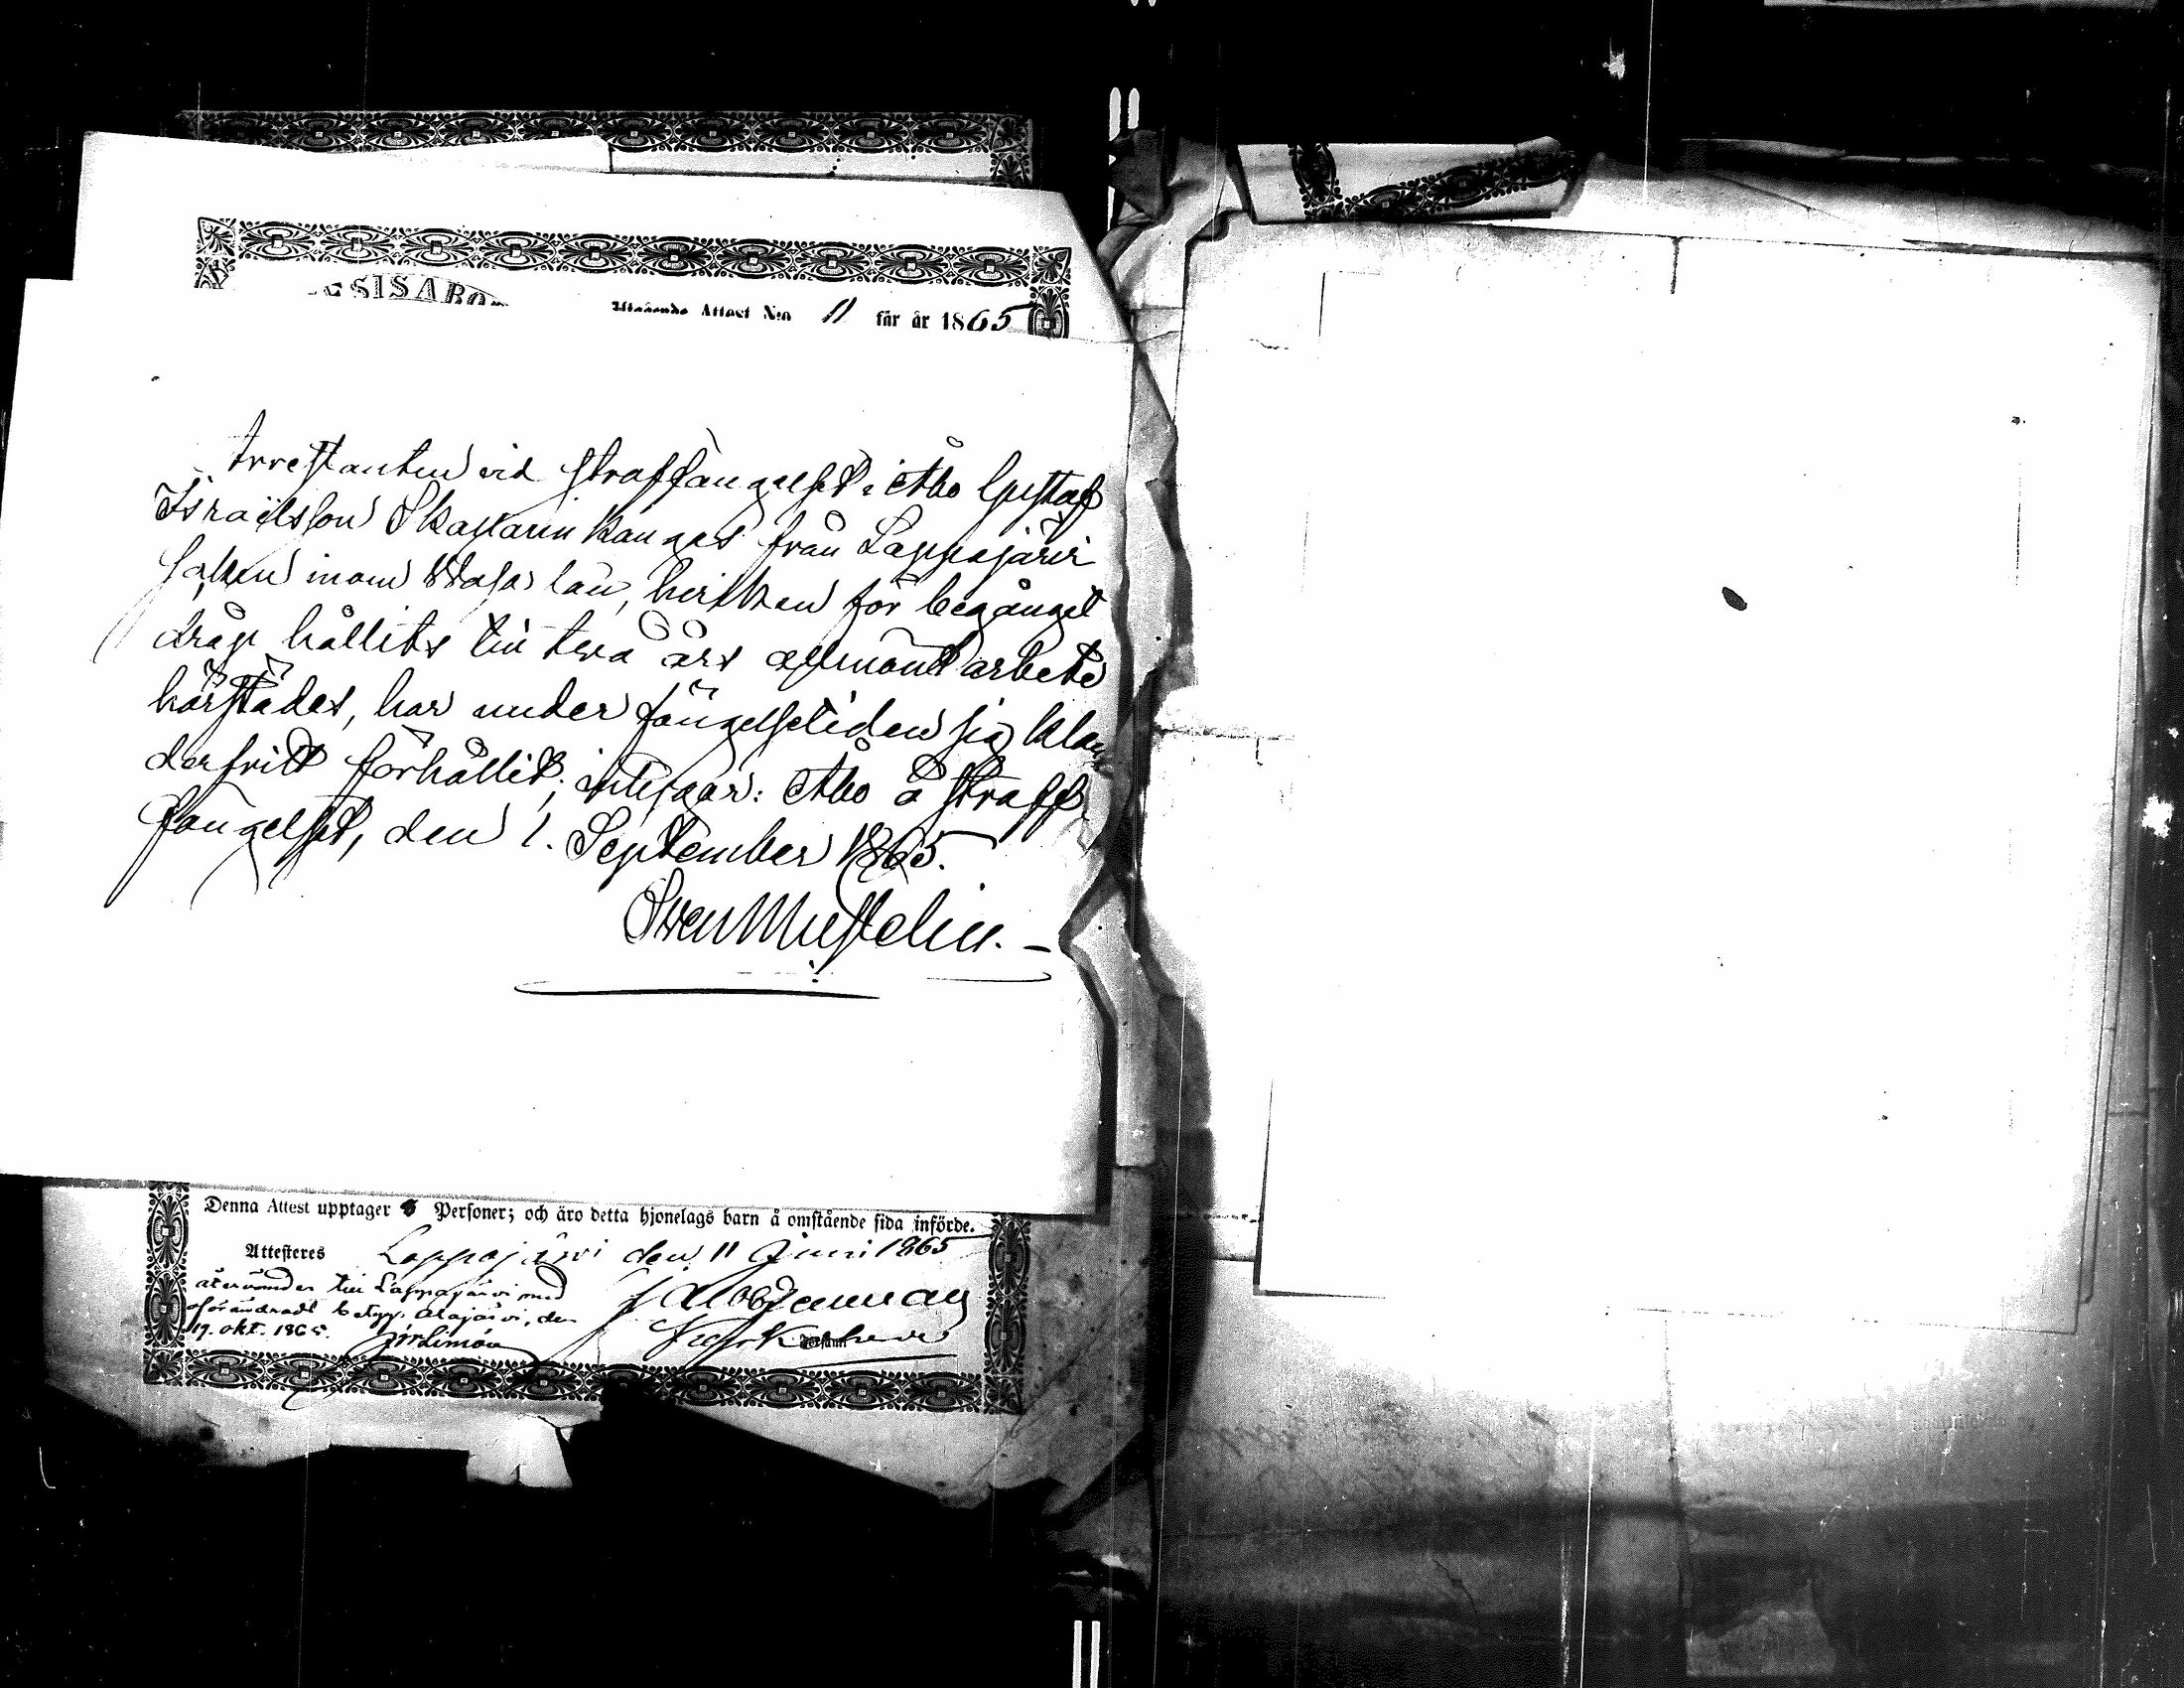 Utgående Attest N:o 11 för år 1865
Arrestanten vid straffängelset i Åbo Gustaf
Israëlsson Skaffarinkangas från Lappajärvi
socken inom Wasa län, hvilken för begånget
dråp hållits till två års allmänt arbete
härstädes, har under fängelsetiden sig klan
derfritt förhållit; intygar: Åbo å straff
fängelset, den 1. September 1865.
Sven Mustelin.
Denna Attest upptager Personer; och äro detta hjonelags barn å omstående sida införde.
Attesteres Lappajärvi den 11 Juni 1865
återvänder till Lappajärvi med
oförändradt betyg. Alajärvi, den
19. okt. 1865.